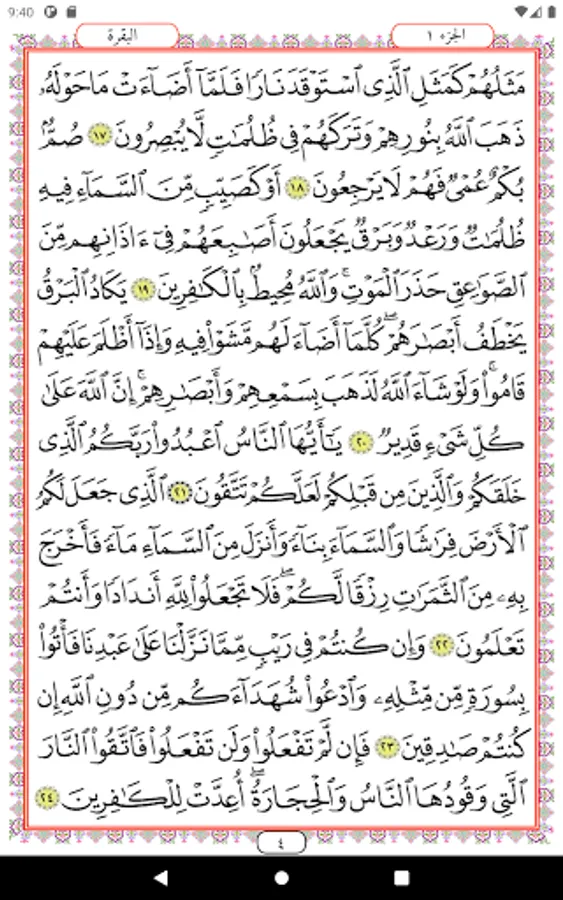 9:40
الجزء ١
البقرة
مَثَلُهُمْ كَمَثَلِ ٱلَّذِى ٱسْتَوْقَدَ نَارًا فَلَمَّآ أَضَآءَتْ مَا حَوْلَهُۥ
ذَهَبَ ٱللَّهُ بِنُورِهِمْ وَتَرَكَهُمْ فِى ظُلُمَٰتٍ لَّا يُبْصِرُونَ ١٧ صُمٌّۢ
بُكْمٌ عُمْىٌ فَهُمْ لَا يَرْجِعُونَ ١٨ أَوْ كَصَيِّبٍ مِّنَ ٱلسَّمَآءِ فِيهِ
ظُلُمَٰتٌ وَرَعْدٌ وَبَرْقٌ يَجْعَلُونَ أَصَٰبِعَهُمْ فِىٓ ءَاذَانِهِم مِّنَ
ٱلصَّوَٰعِقِ حَذَرَ ٱلْمَوْتِ ۚ وَٱللَّهُ مُحِيطٌۢ بِٱلْكَٰفِرِينَ ١٩ يَكَادُ ٱلْبَرْقُ
يَخْطَفُ أَبْصَٰرَهُمْ ۖ كُلَّمَآ أَضَآءَ لَهُم مَّشَوْا۟ فِيهِ وَإِذَآ أَظْلَمَ عَلَيْهِمْ
قَامُوا۟ ۚ وَلَوْ شَآءَ ٱللَّهُ لَذَهَبَ بِسَمْعِهِمْ وَأَبْصَٰرِهِمْ ۚ إِنَّ ٱللَّهَ عَلَىٰ
كُلِّ شَىْءٍ قَدِيرٌ ٢٠ يَٰٓأَيُّهَا ٱلنَّاسُ ٱعْبُدُوا۟ رَبَّكُمُ ٱلَّذِى
خَلَقَكُمْ وَٱلَّذِينَ مِن قَبْلِكُمْ لَعَلَّكُمْ تَتَّقُونَ ٢١ ٱلَّذِى جَعَلَ لَكُمُ
ٱلْأَرْضَ فِرَٰشًا وَٱلسَّمَآءَ بِنَآءً وَأَنزَلَ مِنَ ٱلسَّمَآءِ مَآءً فَأَخْرَجَ
بِهِۦ مِنَ ٱلثَّمَرَٰتِ رِزْقًا لَّكُمْ ۖ فَلَا تَجْعَلُوا۟ لِلَّهِ أَندَادًا وَأَنتُمْ
تَعْلَمُونَ ٢٢ وَإِن كُنتُمْ فِى رَيْبٍ مِّمَّا نَزَّلْنَا عَلَىٰ عَبْدِنَا فَأْتُوا۟
بِسُورَةٍ مِّن مِّثْلِهِۦ وَٱدْعُوا۟ شُهَدَآءَكُم مِّن دُونِ ٱللَّهِ إِن
كُنتُمْ صَٰدِقِينَ ٢٣ فَإِن لَّمْ تَفْعَلُوا۟ وَلَن تَفْعَلُوا۟ فَٱتَّقُوا۟ ٱلنَّارَ
ٱلَّتِى وَقُودُهَا ٱلنَّاسُ وَٱلْحِجَارَةُ ۖ أُعِدَّتْ لِلْكَٰفِرِينَ ٢٤
٤